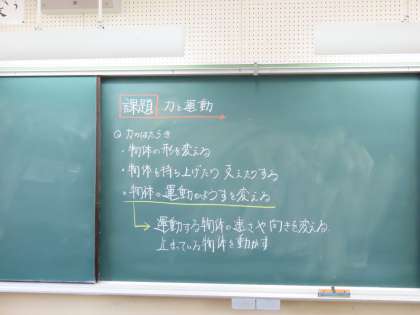 課題 力と運動
Q 力のはたらき
・物体の形を変える
・物体を持ち上げたり 支えたりする
・物体の運動のようすを変える
→ 運動する物体の速さや向きを変える
止まっている物体を動かす